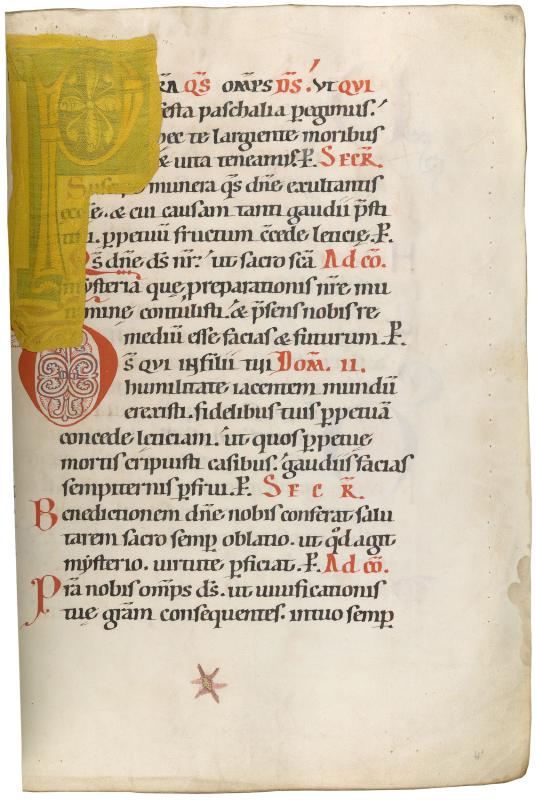 RA QS OMPS DS. UT QUI
festa paschalia pegimus.
hec te largiente moribus
& uita teneamus. P. SECR.
Suscipe munera qs dne exultantis
eccle. & cui causam tanti gaudii psti
tisti. ppetuu fructum ccede leticie. P.
qs dne ds nr. ut sacro sca Ad co.
mysteria que preparationis nre mu
nimine contulisti. & psens nobis re
mediu esse facias & futurum. P.
Ds QUI IN FILII TUI Dom. II.
humilitate iacentem mundu
erexisti. fidelibus tuis ppetua
concede leticiam. ut quos ppetue
mortis eripuisti casibus. gaudiis facias
sempiternis pfrui. P. SECR.
Benedictionem dne nobis conferat salu
tarem sacro semp oblatio. ut qd agit
mysterio. uirtute pficiat. P. Ad co.
Pra nobis omps ds. ut uiuificationis
tue gram consequentes. in tuo semp